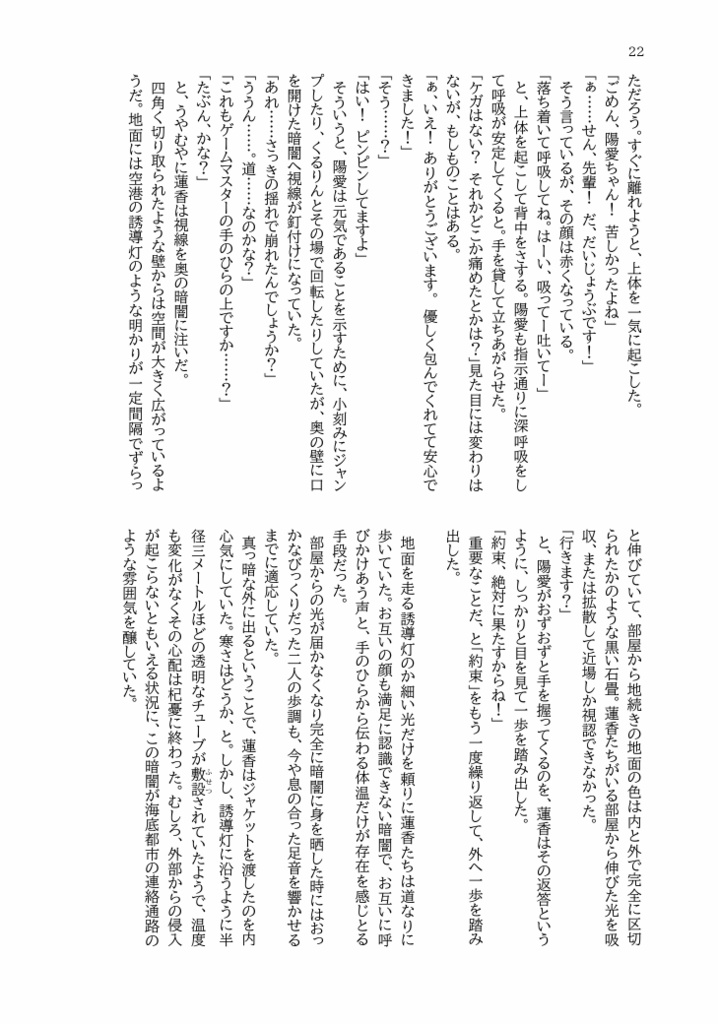 22
ただろう。すぐに離れようと、上体を一気に起こした。
「ごめん、陽愛ちゃん！ 苦しかったよね」
「ぁ……せん、先輩！ だ、だいじょうぶです！」
そう言っているが、その顔は赤くなっている。
「落ち着いて呼吸してね。はーい、吸ってー吐いてー」
と、上体を起こして背中をさする。陽愛も指示通りに深呼吸をし
て呼吸が安定してくると。手を貸して立ちあがらせた。
「ケガはない？ それかどこか痛めたとかは？」見た目には変わりは
ないが、もしものことはある。
「ぁ、いえ！ ありがとうございます。優しく包んでくれてて安心で
きました！」
「そう……？」
「はい！ ピンピンしてますよ」
そういうと、陽愛は元気であることを示すために、小刻みにジャン
プしたり、くるりんとその場で回転したりしていたが、奥の壁に口
を開けた暗闇へ視線が釘付けになっていた。
「あれ……さっきの揺れで崩れたんでしょうか？」
「ううん……。道……なのかな？」
「これもゲームマスターの手のひらの上ですか……？」
「たぶん、かな？」
と、うやむやに蓮香は視線を奥の暗闇に注いだ。
四角く切り取られたような壁からは空間が大きく広がっているよ
うだ。地面には空港の誘導灯のような明かりが一定間隔でずらっ
と伸びていて、部屋から地続きの地面の色は内と外で完全に区切
られたかのような黒い石畳。蓮香たちがいる部屋から伸びた光を吸
収、または拡散して近場しか視認できなかった。
「行きます？」
と、陽愛がおずおずと手を握ってくるのを、蓮香はその返答という
ように、しっかりと目を見て一歩を踏み出した。
「約束、絶対に果たすからね！」
重要なことだ、と「約束」をもう一度繰り返して、外へ一歩を踏み
出した。
地面を走る誘導灯のか細い光だけを頼りに蓮香たちは道なりに
歩いていた。お互いの顔も満足に認識できない暗闇で、お互いに呼
びかけあう声と、手のひらから伝わる体温だけが存在を感じとる
手段だった。
部屋からの光が届かなくなり完全に暗闇に身を晒した時にはおっ
かなびっくりだった二人の歩調も、今や息の合った足音を響かせる
までに適応していた。
真っ暗な外に出るということで、蓮香はジャケットを渡したのを内
心気にしていた。寒さはどうか、と。しかし、誘導灯に沿うように半
径三メートルほどの透明なチューブが敷設されていたようで、温度
ふせつ
も変化がなくその心配は杞憂に終わった。むしろ、外部からの侵入
が起こらないともいえる状況に、この暗闇が海底都市の連絡通路の
ような雰囲気を醸していた。